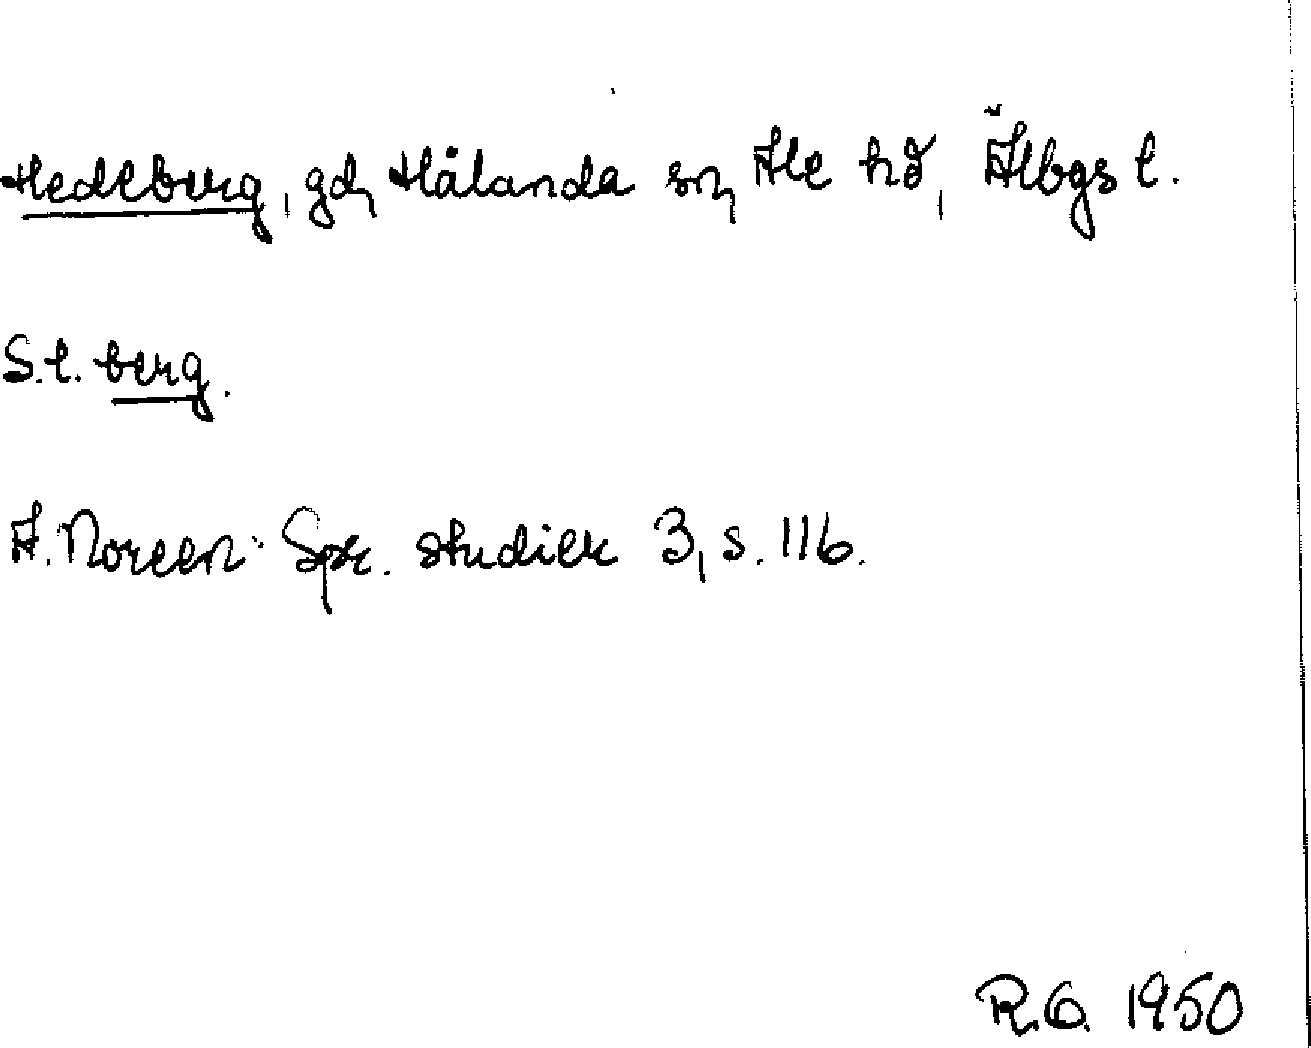 Hedeberg, gd, Hålanda sn, Ale hd, Älbgs l.
S.l. berg.
A. Noreen: Spr. studier 3, s. 116.
R.G. 1950